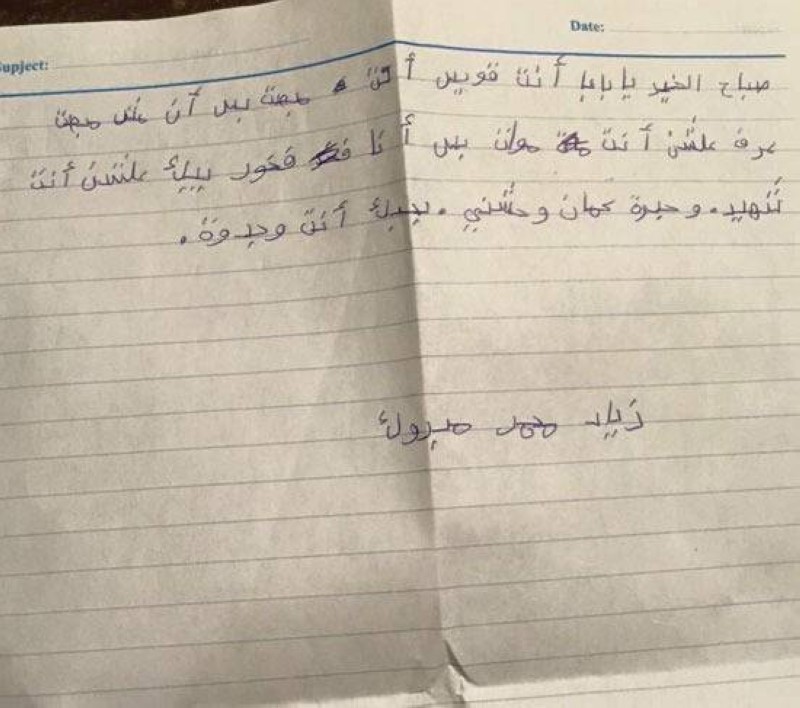 Date:
Supject:
صباح الخير يا بابا أنت قويس أنت مبعت بس أن مش مبعت
عرف علشن أنت موت بس أنا فخور بيك علشن أنت
شهيد. وحبرة كمان وحشني. بحبك أنت وجدوة.
زياد محمد مبروك